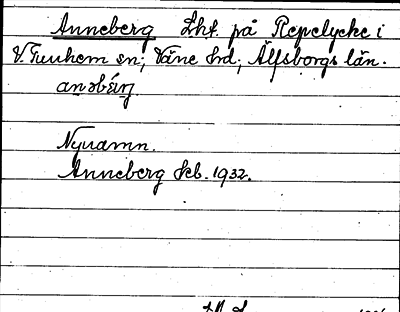 Anneberg Lht. på Repelycke i
V. Tunhem sn; Väne hd; Älfsborgs län.
Nynamn.
Anneberg Jeb. 1932.